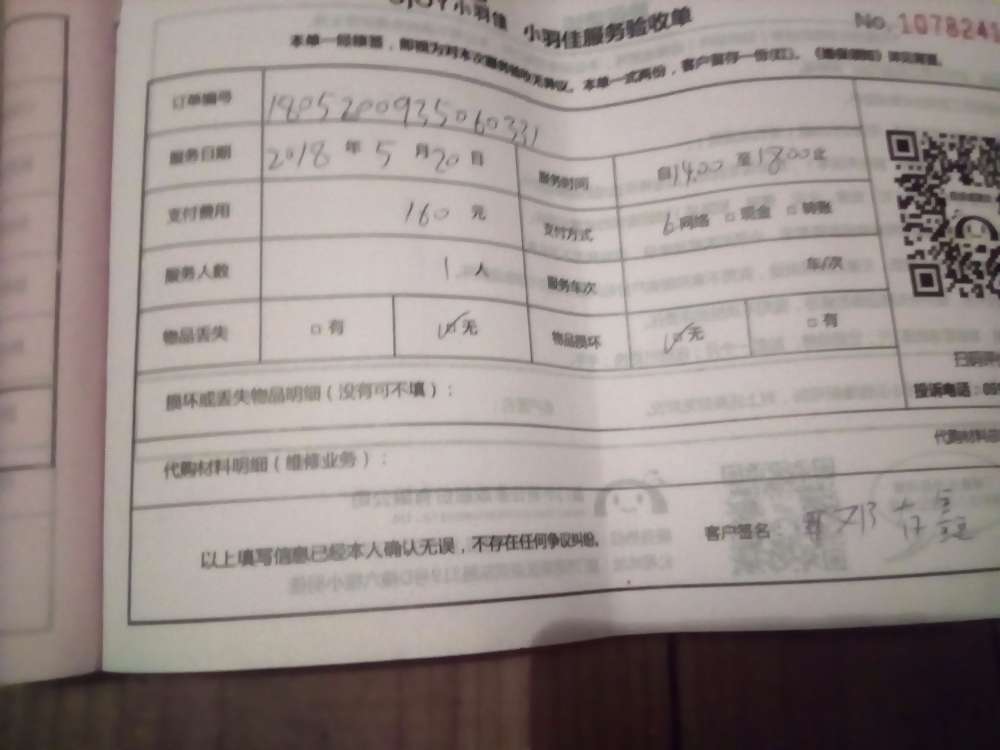 小羽佳 小羽佳服务验收单 No. 1078241
本单一经签署，即视为对本次服务验收无异议。本单一式两份，客户留存一份(红)。
订单编号 1805200935060331
服务日期 2018 年 5 月 20 日 服务时间 自 14:00 至 18:00 止
支付费用 160 元 支付方式 网络 □ 现金 □ 转账
服务人数 1 人 服务车次 车/次
物品丢失 □ 有 ☑ 无 物品损坏 ☑ 无 □ 有
扫码
损坏或丢失物品明细（没有可不填）： 投诉电话：
代购材料
代购材料明细（维修业务）：
以上填写信息已经本人确认无误，不存在任何争议纠纷。 客户签名：